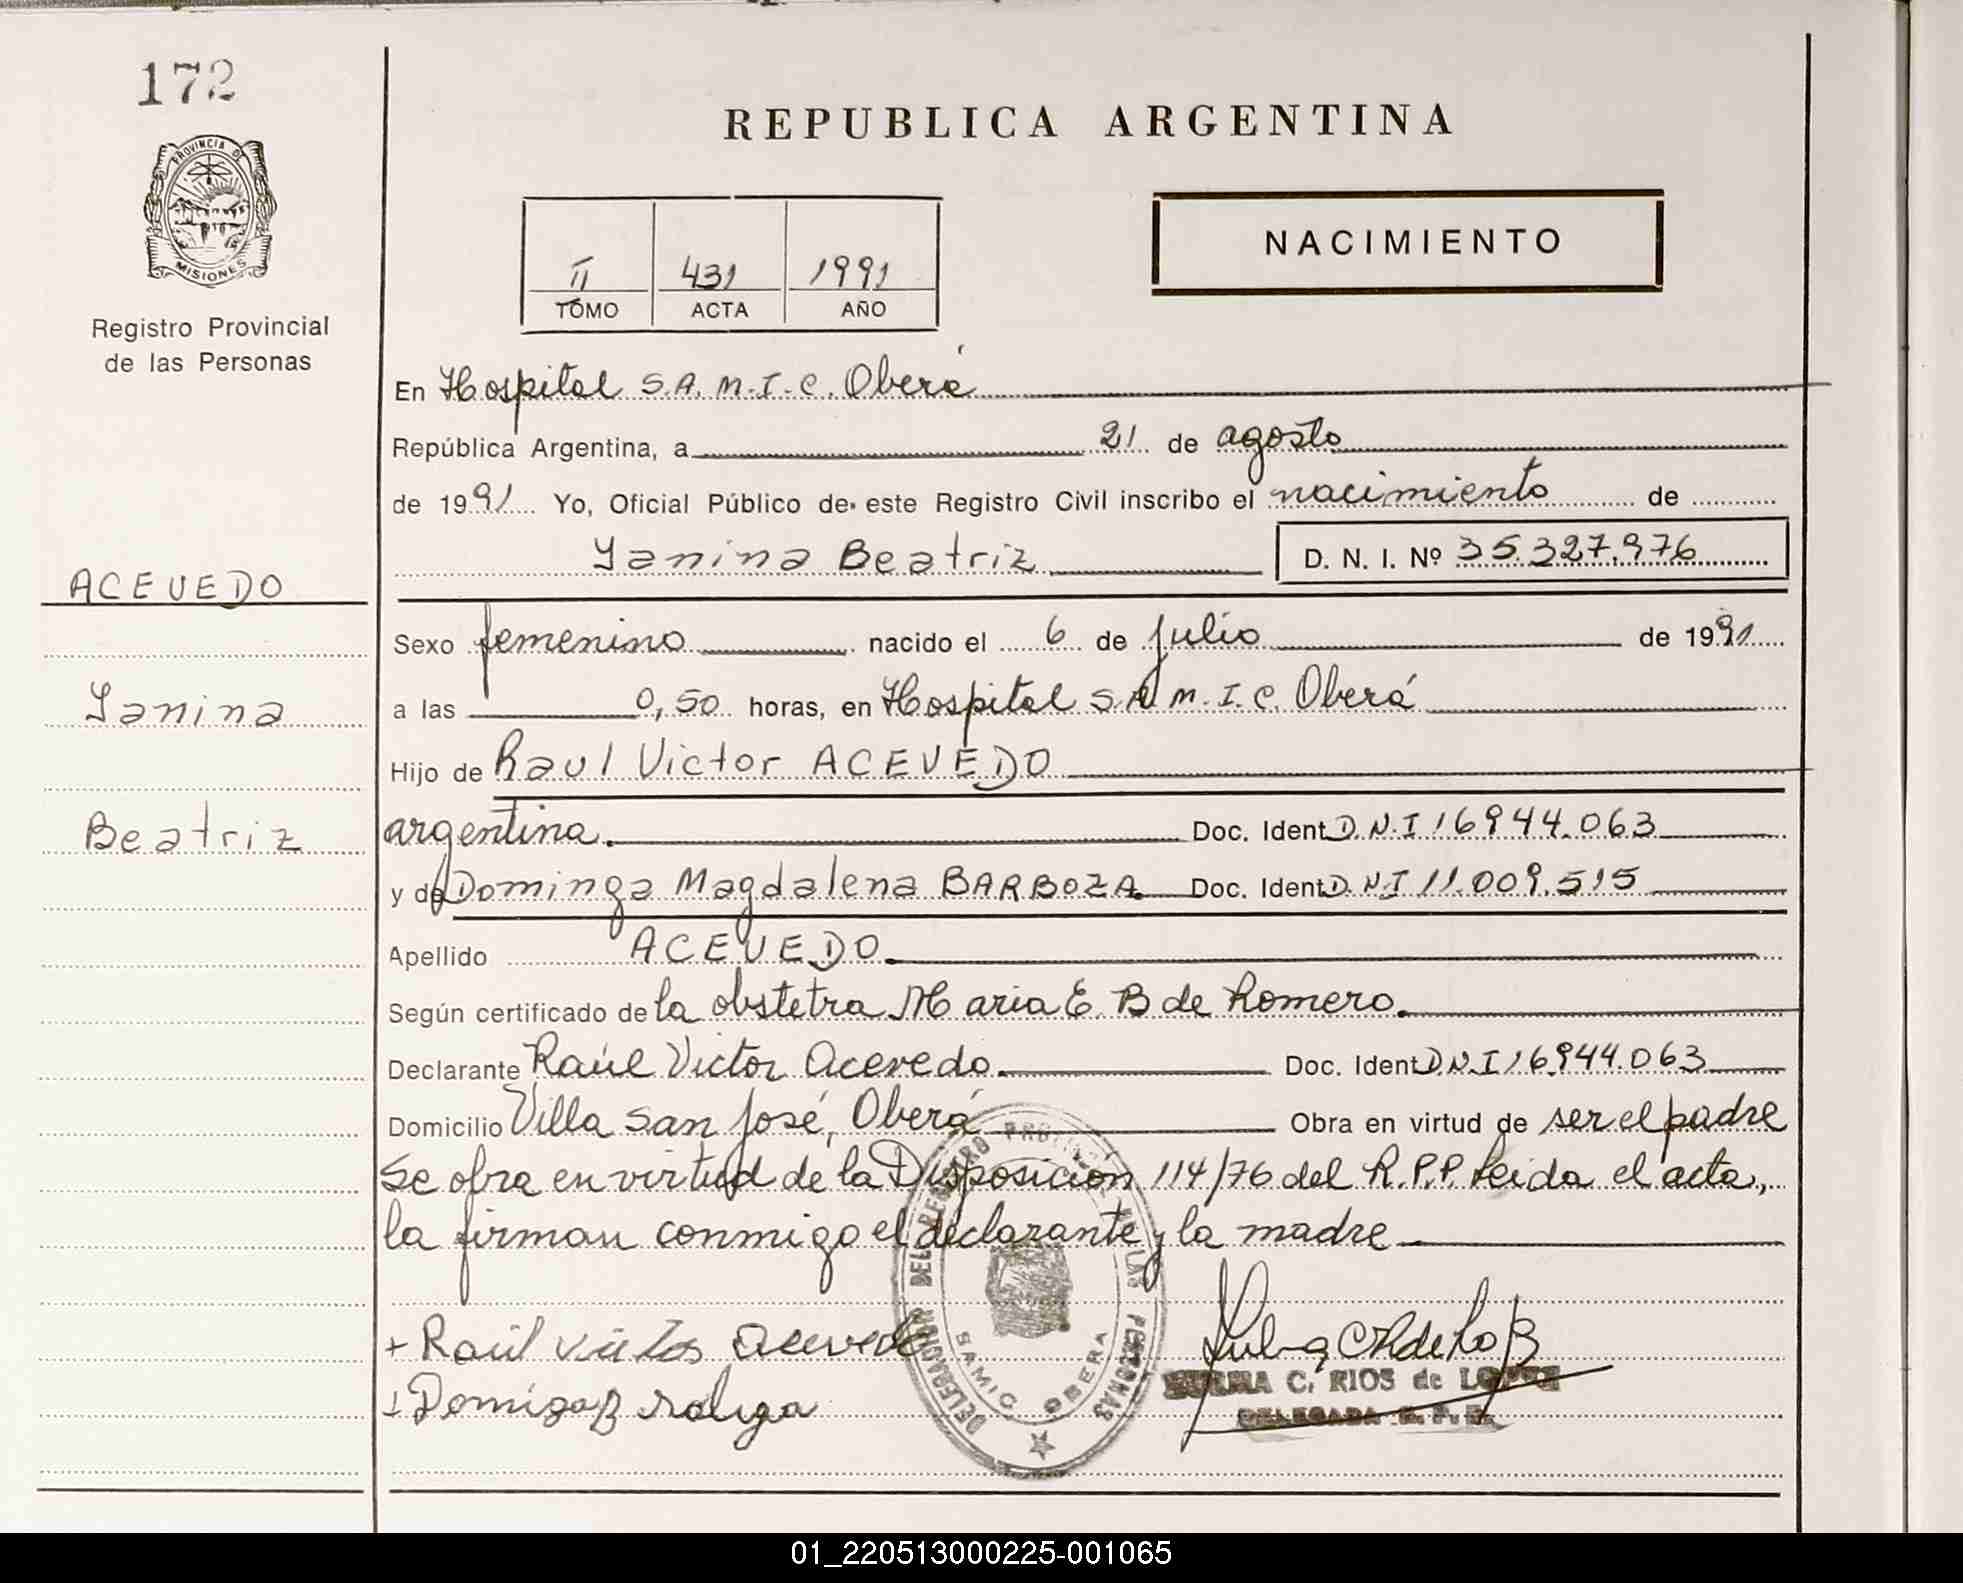 172
REPUBLICA ARGENTINA
PROVINCIA DE
MISIONES
Registro Provincial
de las Personas
II 431 1991
TOMO ACTA AÑO
NACIMIENTO
En Hospital S.A.M.I.C. Oberá
República Argentina, a 21 de agosto
de 1991 Yo, Oficial Público de este Registro Civil inscribo el nacimiento de
Yanina Beatriz D. N. I. Nº 35.327.976
ACEVEDO
Yanina
Beatriz
Sexo femenino nacido el 6 de julio de 1991
a las 0,50 horas, en Hospital S.A.M.I.C. Oberá
Hijo de Raul Victor ACEVEDO
argentina. Doc. Ident D.N.I 16944.063
y de Dominga Magdalena BARBOZA. Doc. Ident D.N.I 11.009.515
Apellido ACEVEDO.
Según certificado de la obstetra Maria E. B de Romero.
Declarante Raúl Victor Acevedo. Doc. Ident D.N.I 16.944.063
Domicilio Villa San José, Oberá Obra en virtud de ser el padre
Se obra en virtud de la Disposicion 114/76 del R.P.P. Leida el acta,
la firman conmigo el declarante y la madre
+ Raúl Acevedo
DELEGACION DEL REGISTRO PROVINCIAL DE LAS PERSONAS
SAMIC OBERA
C. RIOS de LOPEZ
DELEGADA R. P. P.
01_220513000225-001065